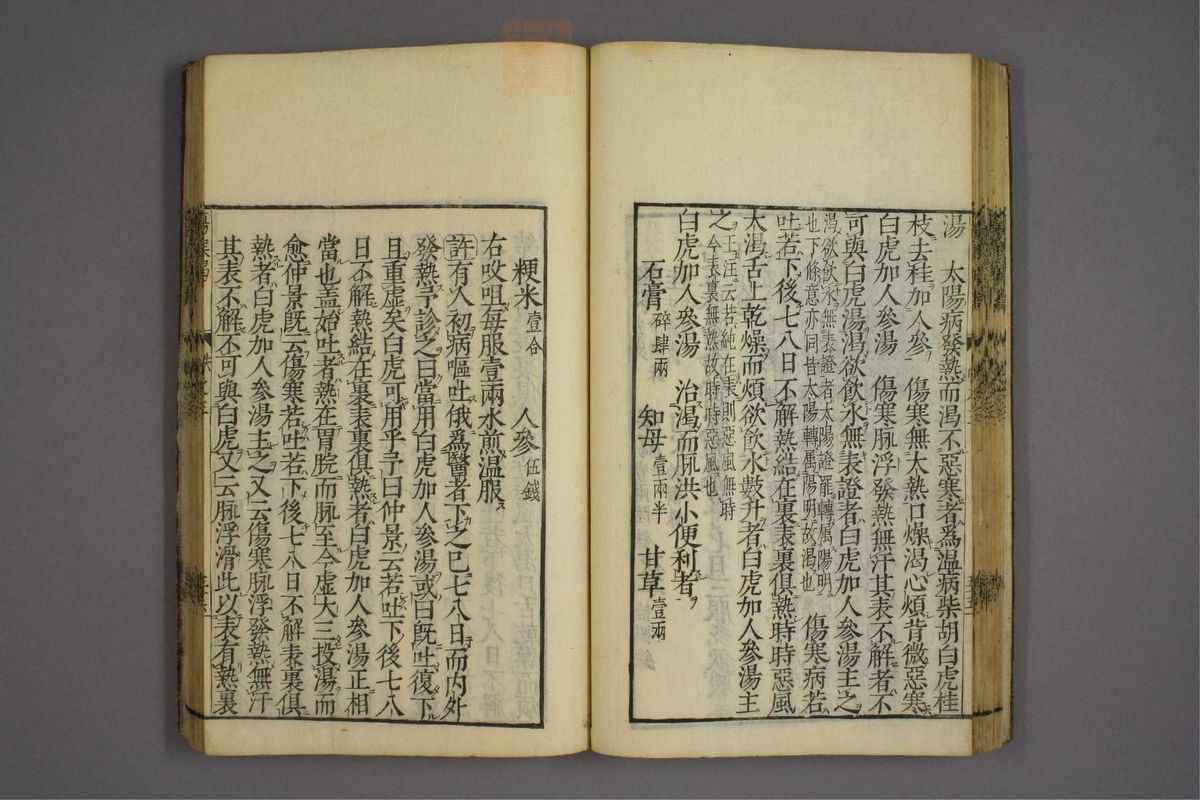 湯　太陽病發熱而渴不惡寒者爲溫病柴胡白虎桂
枝去桂加人參　傷寒無大熱口燥渴心煩背微惡寒
白虎加人參湯　傷寒脉浮發熱無汗其表不解者不
可與白虎湯渴欲飲水無表證者白虎加人參湯主之
渴欲飲水無表證者太陽證罷轉属陽明
也下條意亦同皆太陽轉属陽明故渴也
傷寒病若
吐若下後七八日不解熱結在裏表裏俱熱時時惡風
大渴舌上乾燥而煩欲飲水數升者白虎加人參湯主
之
王汪云若純在表則惡風無時
今表裏無熱故時時惡風也
白虎加人參湯　治渴而脉洪小便利者
石膏碎肆兩　知母壹兩半　甘草壹兩
粳米壹合　人參伍錢
右㕮咀每服壹兩水煎溫服
許有人初病嘔吐俄爲醫者下之已七八日而内外
發熱予診之曰當用白虎加人參湯或曰既吐復下
且重虛矣白虎可用乎予曰仲景云若吐下後七八
日不解熱結在裏表裏俱熱者白虎加人參湯正相
當也盖始吐者熱在胃脘而脉至今虛大三投湯而
愈仲景既云傷寒若吐若下後七八日不解表裏俱
熱者白虎加人參湯主之又云傷寒脉浮發熱無汗
其表不解不可與白虎又云脉浮滑此以表有熱裏